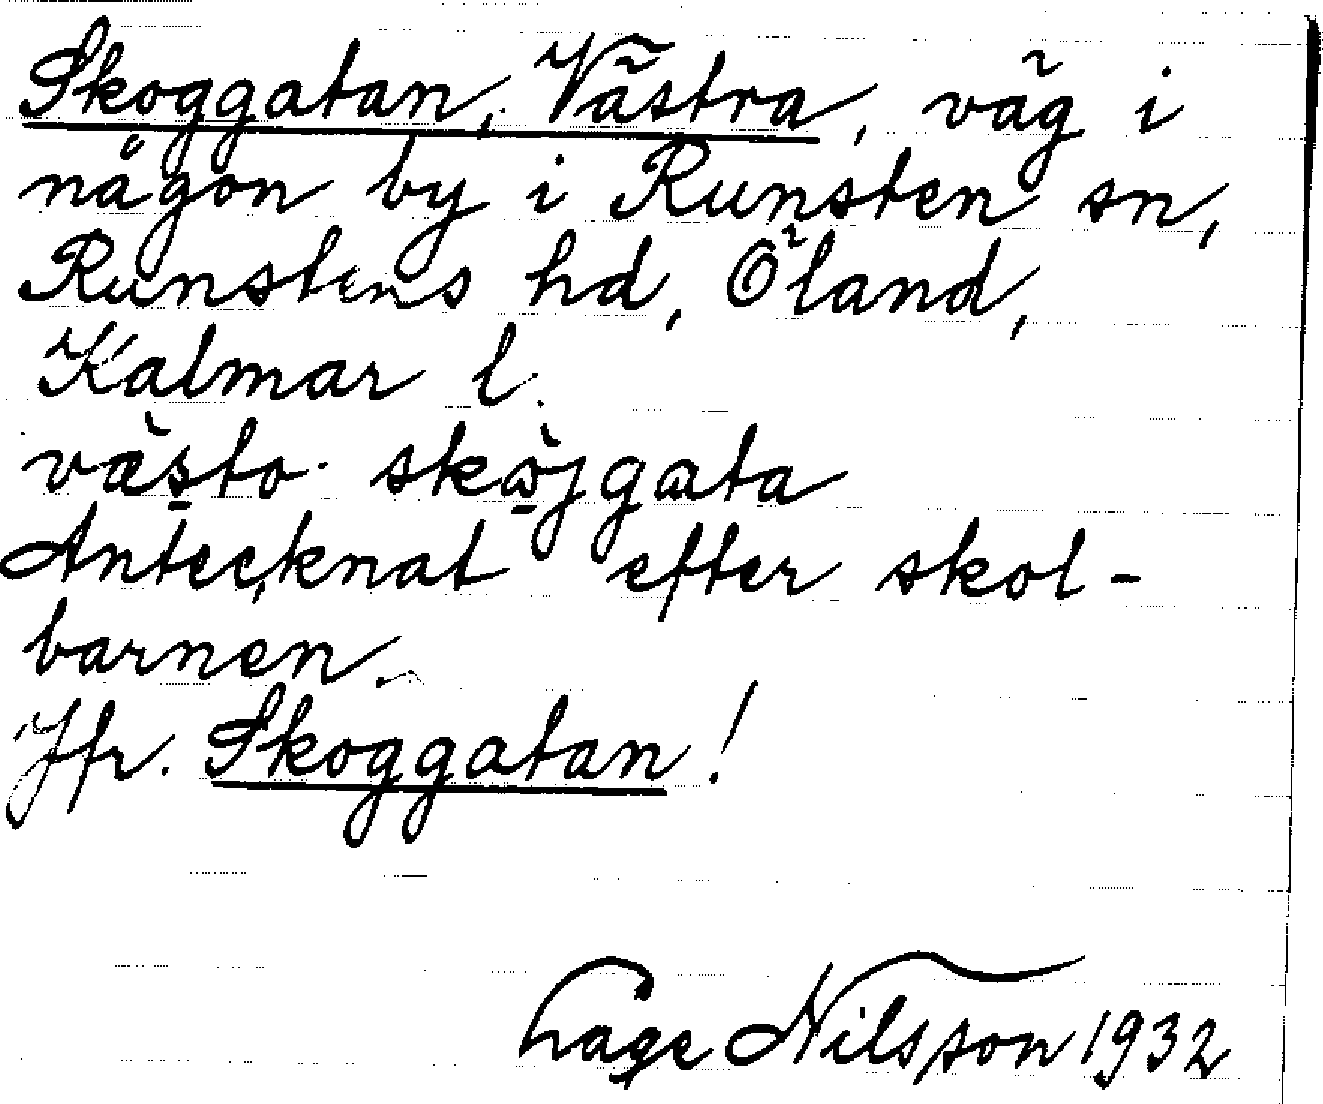 Skoggatan, Västra, väg i
någon by i Runsten sn,
Runstens hd, Öland,
Kalmar l.
Antecknat efter skol-
barnen.
Jfr. Skoggatan!
Lage Nilsson 1932